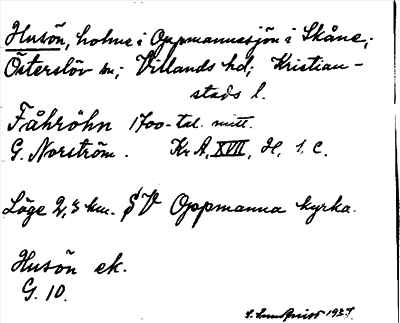 Husön, holme i Oppmannasjön i Skåne;
Österslöv sn; Villands hd; Kristian-
stads l.
Fåhröhn 1700-tal. mitt.
G. Norström. Kr A, XVII, H, 1. C.
Läge 2,3 km. SV Oppmanna kyrka.
Husön ek.
G. 10.
1927